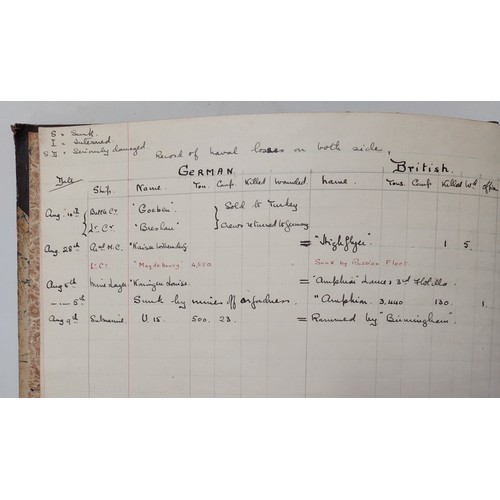 S = Sunk.
I = Interned
S.D = Seriously damaged.
Record of naval losses on both sides,
GERMAN. British.
Date Ship. Name. Ton. Comp Killed Wounded. Name. Tons. Comp Killed Wd
Aug. 4th Battle Cr. "Goeben". Sold to Turkey
Lt. Cr. "Breslau". Crews returned to Germany
Aug 28th Ard M.C. "Kaiser = "Highflyer" 1 5.
Lt. Cr. "Magdeburg" 4,550. Sunk by Russian Fleet.
Aug 5th Mine Layer "Königen Louise. = "Amphion" Lance 3rd Flotilla
5th Sunk by mines off "Amphion. 3,440 130. 1.
Aug 9th Submarine U. 15. 500. 23. = Rammed by "Birmingham".